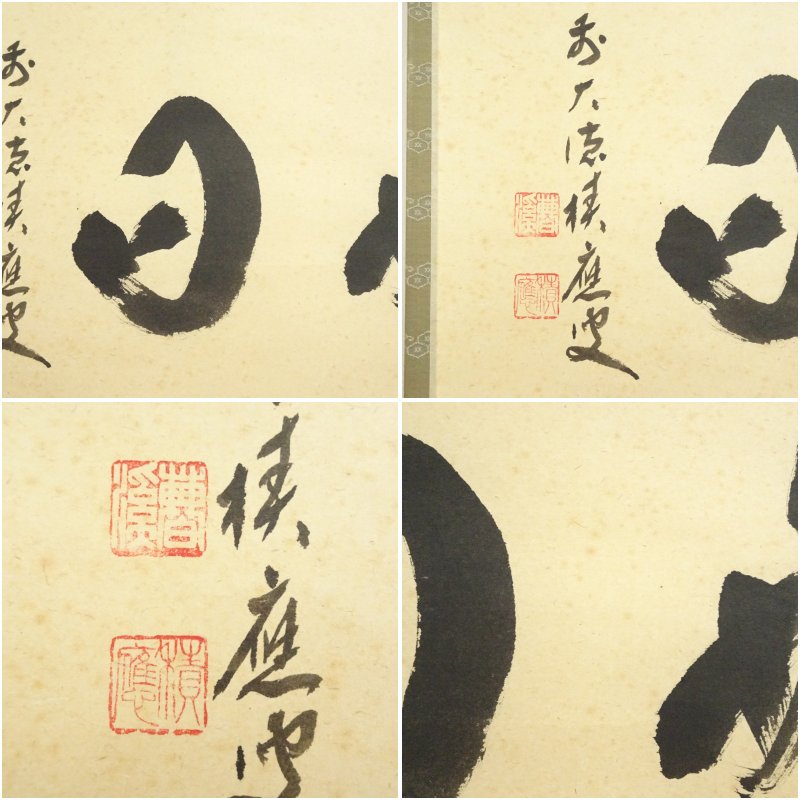 日
前大徳積應叟
日
前大徳積應叟
積應
積應叟
積應